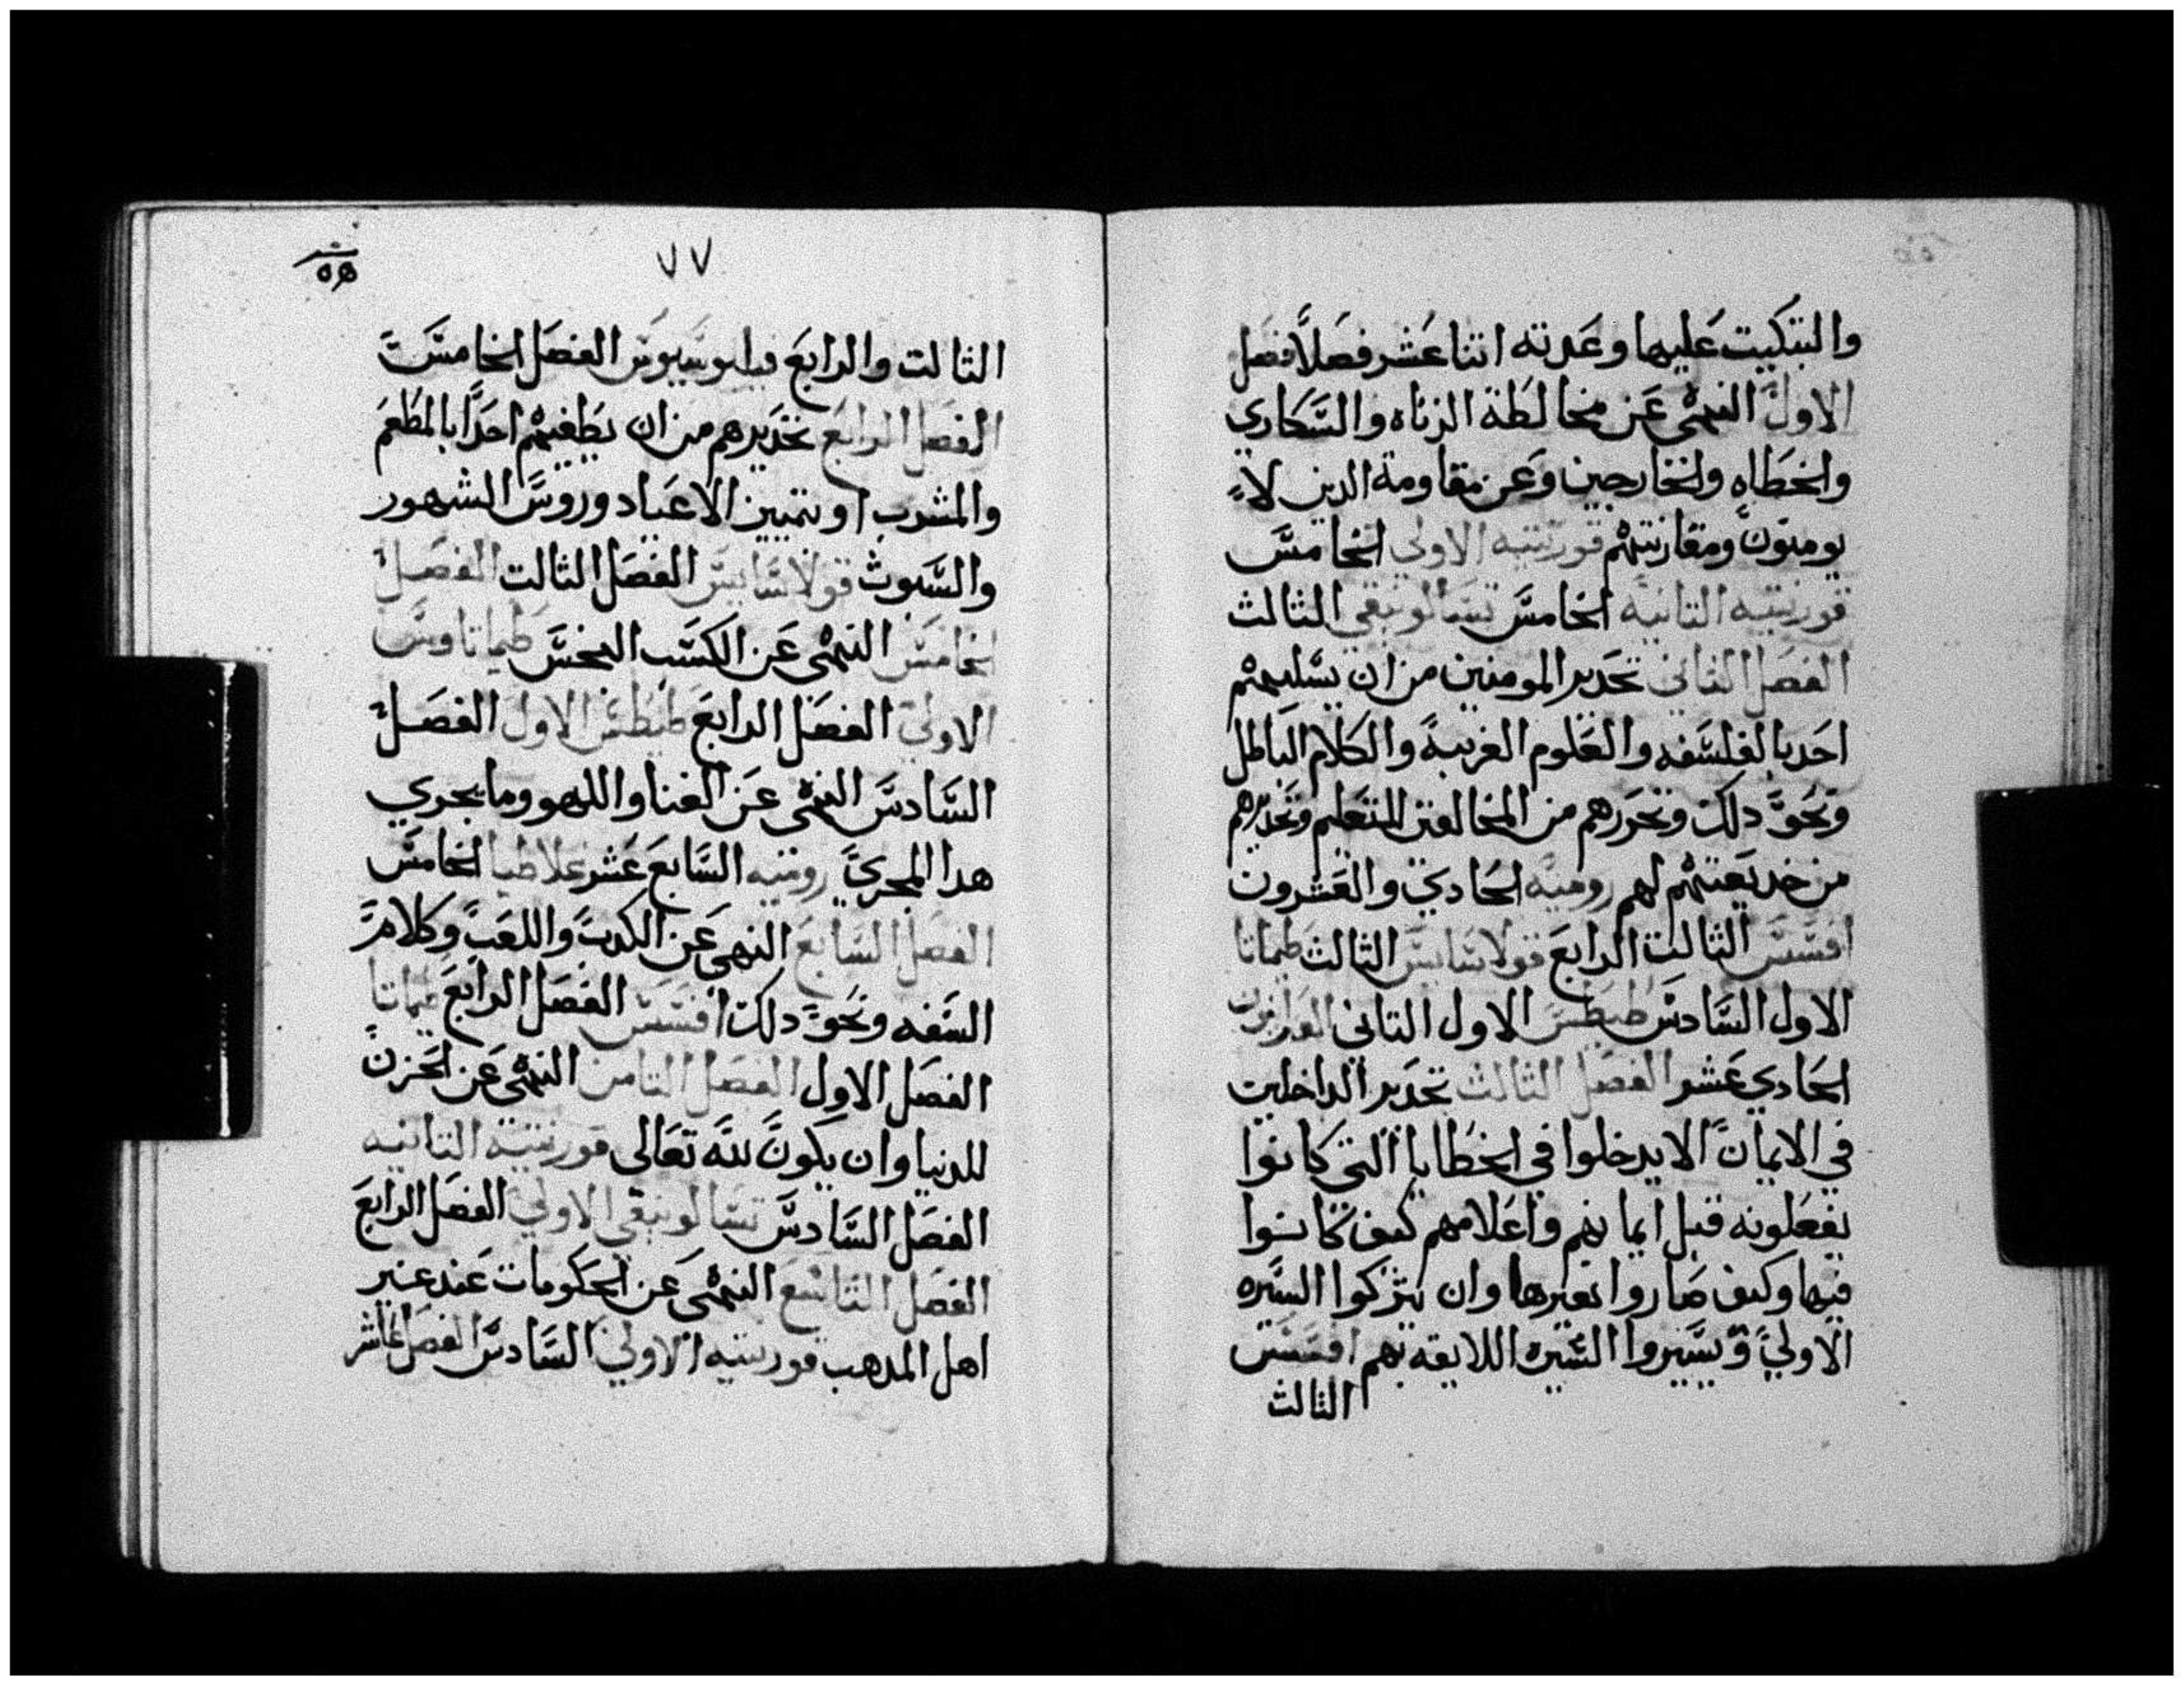 والتبكيت عليها وعدته اثنا عشر فصلاً فصل
الاول النهى عن مخالطة الزناه والسكارى
والخطاه والخارجين وعن مقاومة الدين لا
يومنون ومقارنتهم قورنتيه الاولى الخامس
قورنتيه الثانيه الخامس تسالونيقي الثالث
الفصل الثاني تحدير المومنين من ان يسلبهم
احد بالفلسفه والعلوم الغريبة والكلام الباطل
ونحو دلك وتحورهم من المخالفين للتعليم وتحديرهم
من خديعتهم لهم روميه الحادي والعشرون
افسس الثالث الرابع قولاسايس الثالث طيماتا
الاول السادس طيطس الاول التانى العبرانين
الحادي عشر الفصل الثالث تحدير الداخلين
في الايمان الا يدخلوا في الخطايا التي كانوا
يفعلونه قبل ايمانهم واعلامهم كيف كانوا
فيها وكيف صاروا بغيرها وان يتركوا السيره
الاولي ويسيروا السيره اللايقه بهم افسس
الثالث
٧٧
الثالت والرابع فيلبوسيوس الفصل الخامس
الفصل الرابع تحديرهم من ان يطغيهم احدا بالمطعم
والمشرب او بتمييز الاعياد وروس الشهور
والسبوت قولاسايس الفصل الثالت الفصل
الخامس النهى عن الكسب النجس طيماتاوس
الاولي الفصل الرابع طيطس الاول الفصل
السادس النهى عن الغنا واللهو وما يجري
هدا المجرى روميه السابع عشر غلاطيا الخامس
الفصل السابع النهى عن الكدب واللعب وكلام
السفه ونحو دلك افسس الفصل الرابع طيماتا
الفصل الاول الفصل الثامن النهى عن الحزن
للدنيا وان يكون لله تعالى قورنتيه الثانيه
الفصل السادس تسالونيقى الاولي الفصل الرابع
الفصل التاسع النهى عن الحكومات عند غير
اهل المدهب قورنتيه الاولي السادس الفصل عاشر